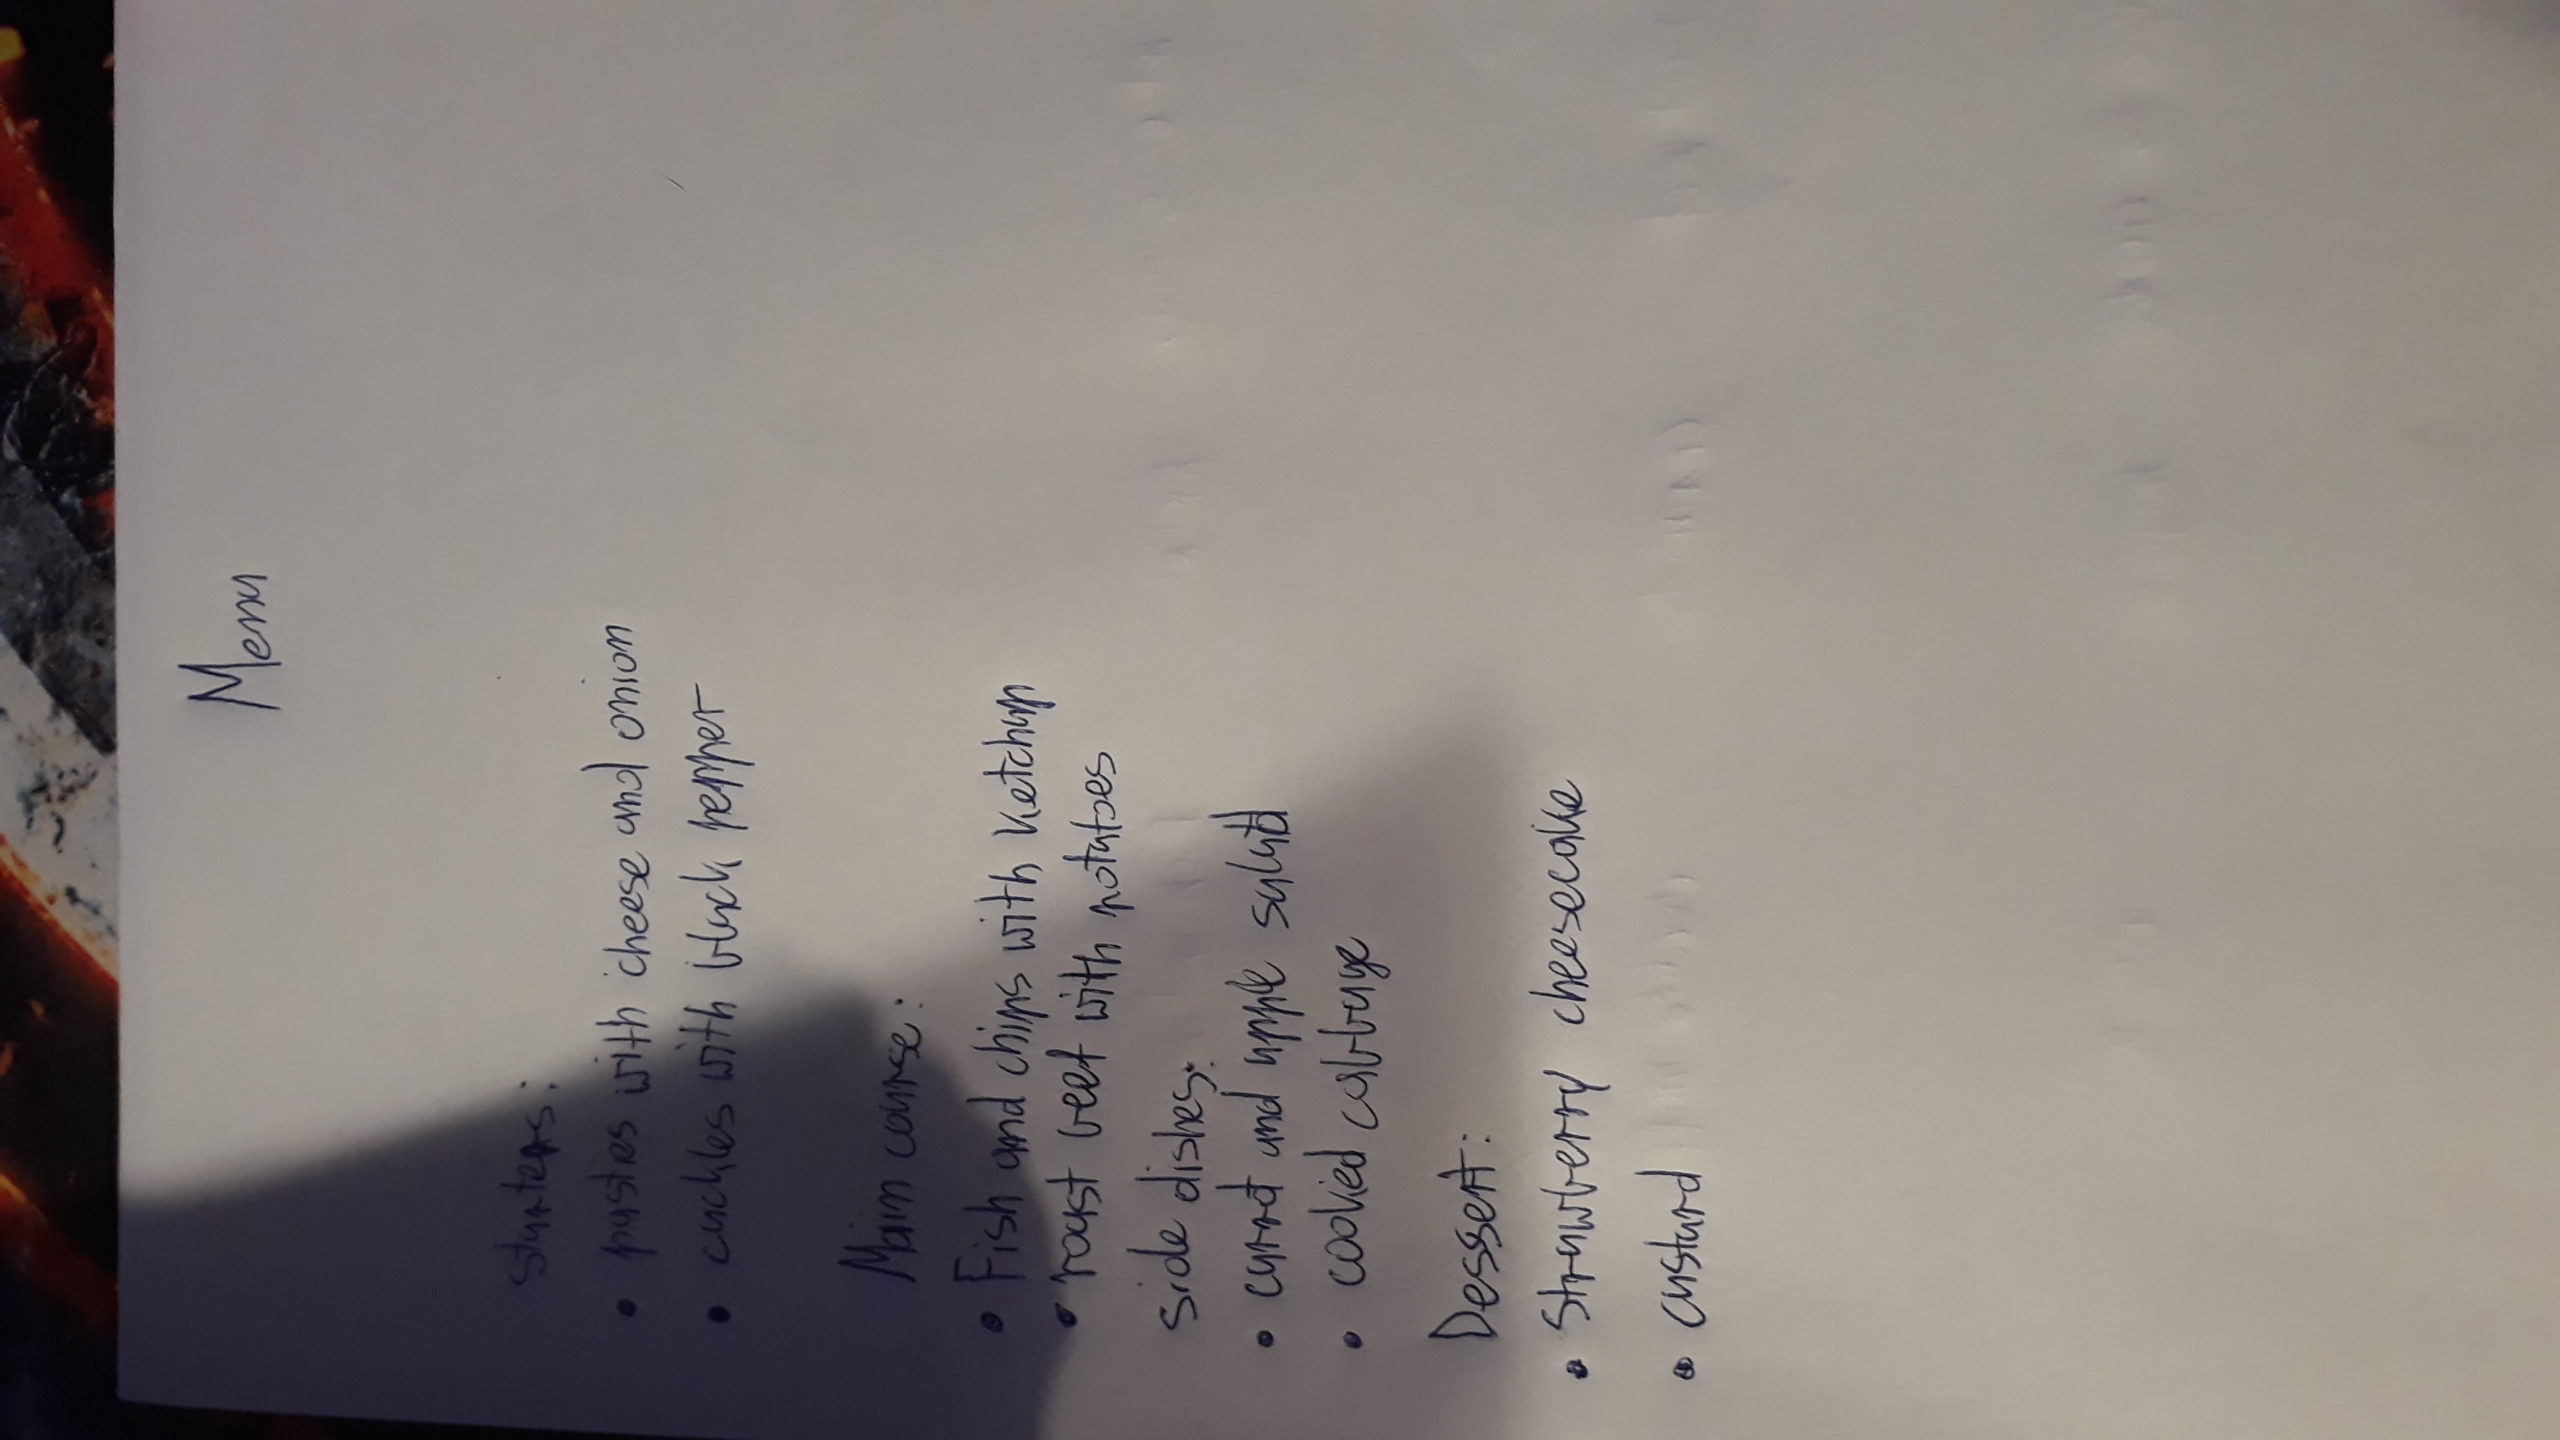 Menu
Starters:
• pasties with cheese and onion
• cackles with black pepper
Main course:
• Fish and chips with ketchup
• roast beef with potatoes
side dishes:
• curd and apple salad
• cooked cabbage
Dessert:
• Strawberry cheesecake
• custard